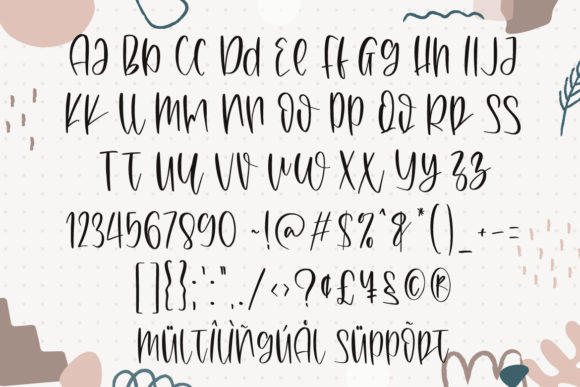 Aa Bb Cc Dd Ee Ff Gg Hh Ii Jj
Kk Ll Mm Nn Oo Pp Qq Rr Ss
Tt Uu Vv Ww Xx Yy Zz
1234567890 ~!@#$%^&*()_+-=
[]{};:'",./<>?¢£¥§©®
mültîlìñgúÅl süppÕrt